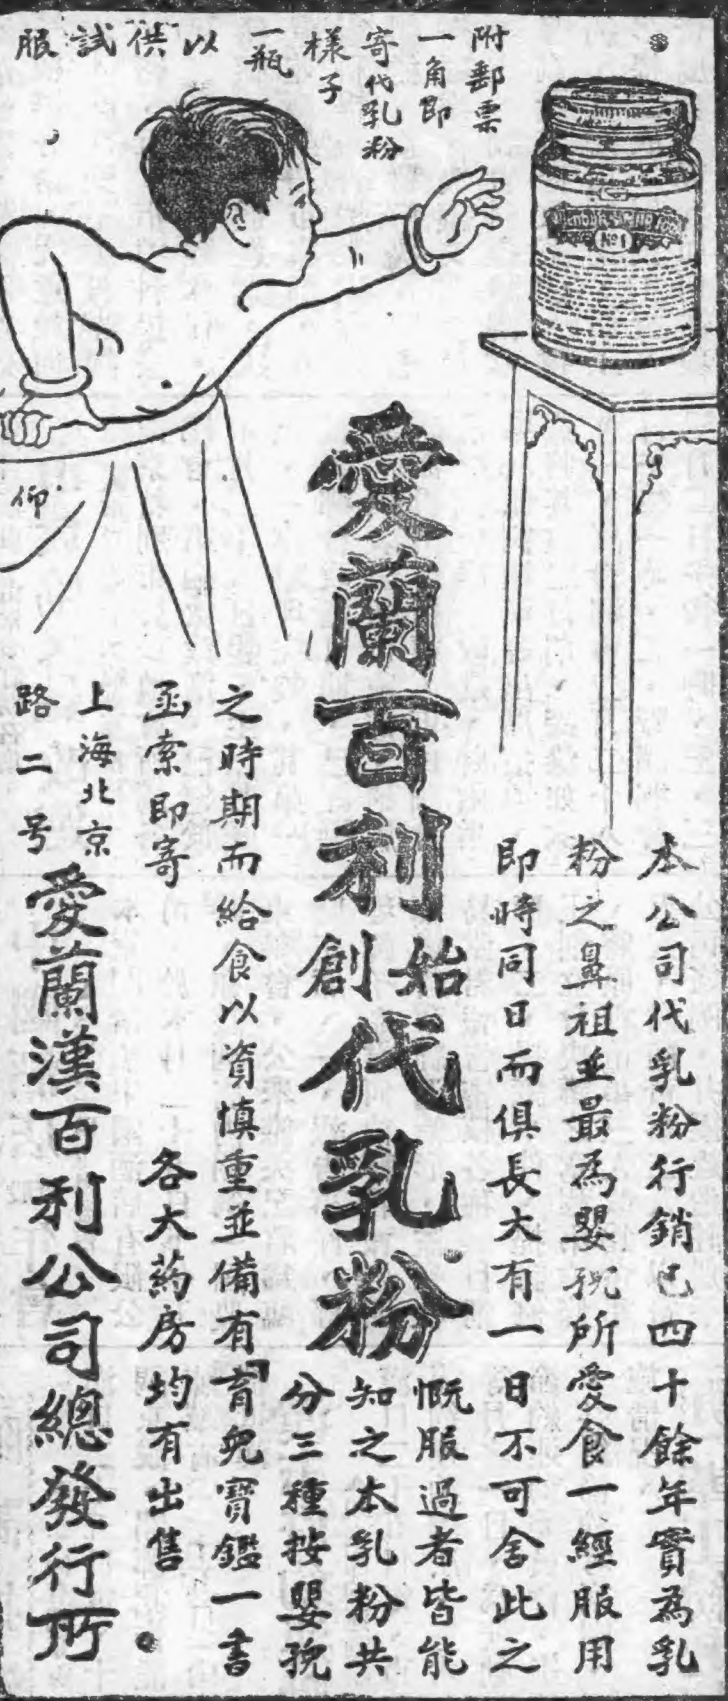 附郵票
一角即
寄代乳粉
樣子
一瓶
以供試服
No1
仰
愛蘭百利
始創
代乳粉
本公司代乳粉行銷已四十餘年實為乳
粉之鼻祖並最為嬰孩所愛食一經服用
即時同日而俱長大有一日不可舍此之
慨服過者皆能
知之本乳粉共
分三種按嬰孩
之時期而給食以資慎重並備有「育兒寶鑑一書
函索即寄
各大葯房均有出售
上海北京
路二号
愛蘭漢百利公司總發行所